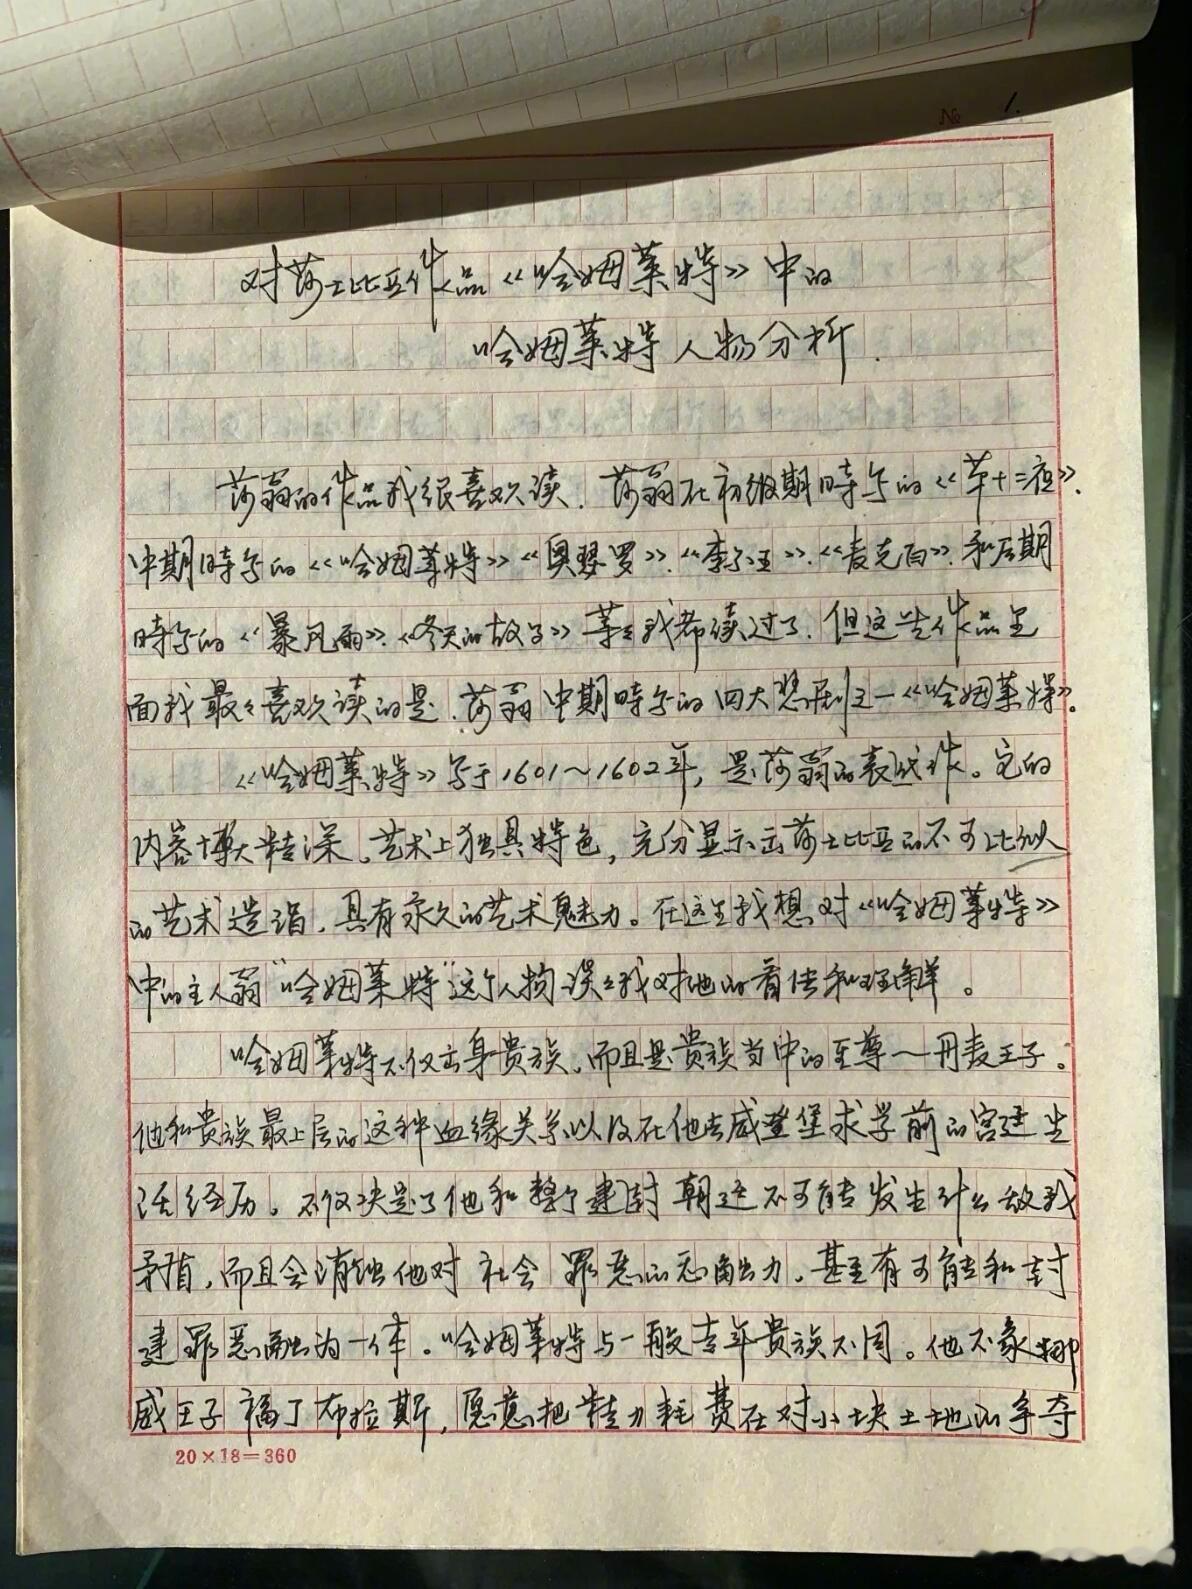 № 1.
对莎士比亚作品《哈姆莱特》中的
哈姆莱特人物分析.
莎翁的作品我很喜欢读.莎翁在初级期時写的《第十二夜》.
中期時写的《哈姆莱特》《奥瑟罗》.《李尔王》.《麦克白》.和后期
時写的《暴风雨》.《冬天的故事》等等我都读过了.但这些作品里
面我最最喜欢读的是.莎翁中期時写的四大悲剧之一《哈姆莱特》。
《哈姆莱特》写于1601~1602年,是莎翁的表代作。它的
内容博大精深、艺术上独具特色,充分显示出莎士比亚的不可比拟
的艺术造诣.具有永久的艺术魅力。在这里我想对《哈姆莱特》
中的主人翁"哈姆莱特"这个人物谈谈我对他的看法和理解。
哈姆莱特不仅出身贵族、而且是贵族当中的至尊—丹麦王子。
他和贵族最上层的这种血缘关系以及在他去威登堡求学前的宫廷生
活经历。不仅决定了他和整个建封朝廷不可能发生什么敌我
矛盾,而且会消蚀他对社会罪恶的 力.甚至有可能和封
建罪恶融为一体。哈姆莱特与一般青年贵族不同。他不象挪
威王子福丁布拉斯,愿意把精力耗费在对小块土地的争夺
20×18=360